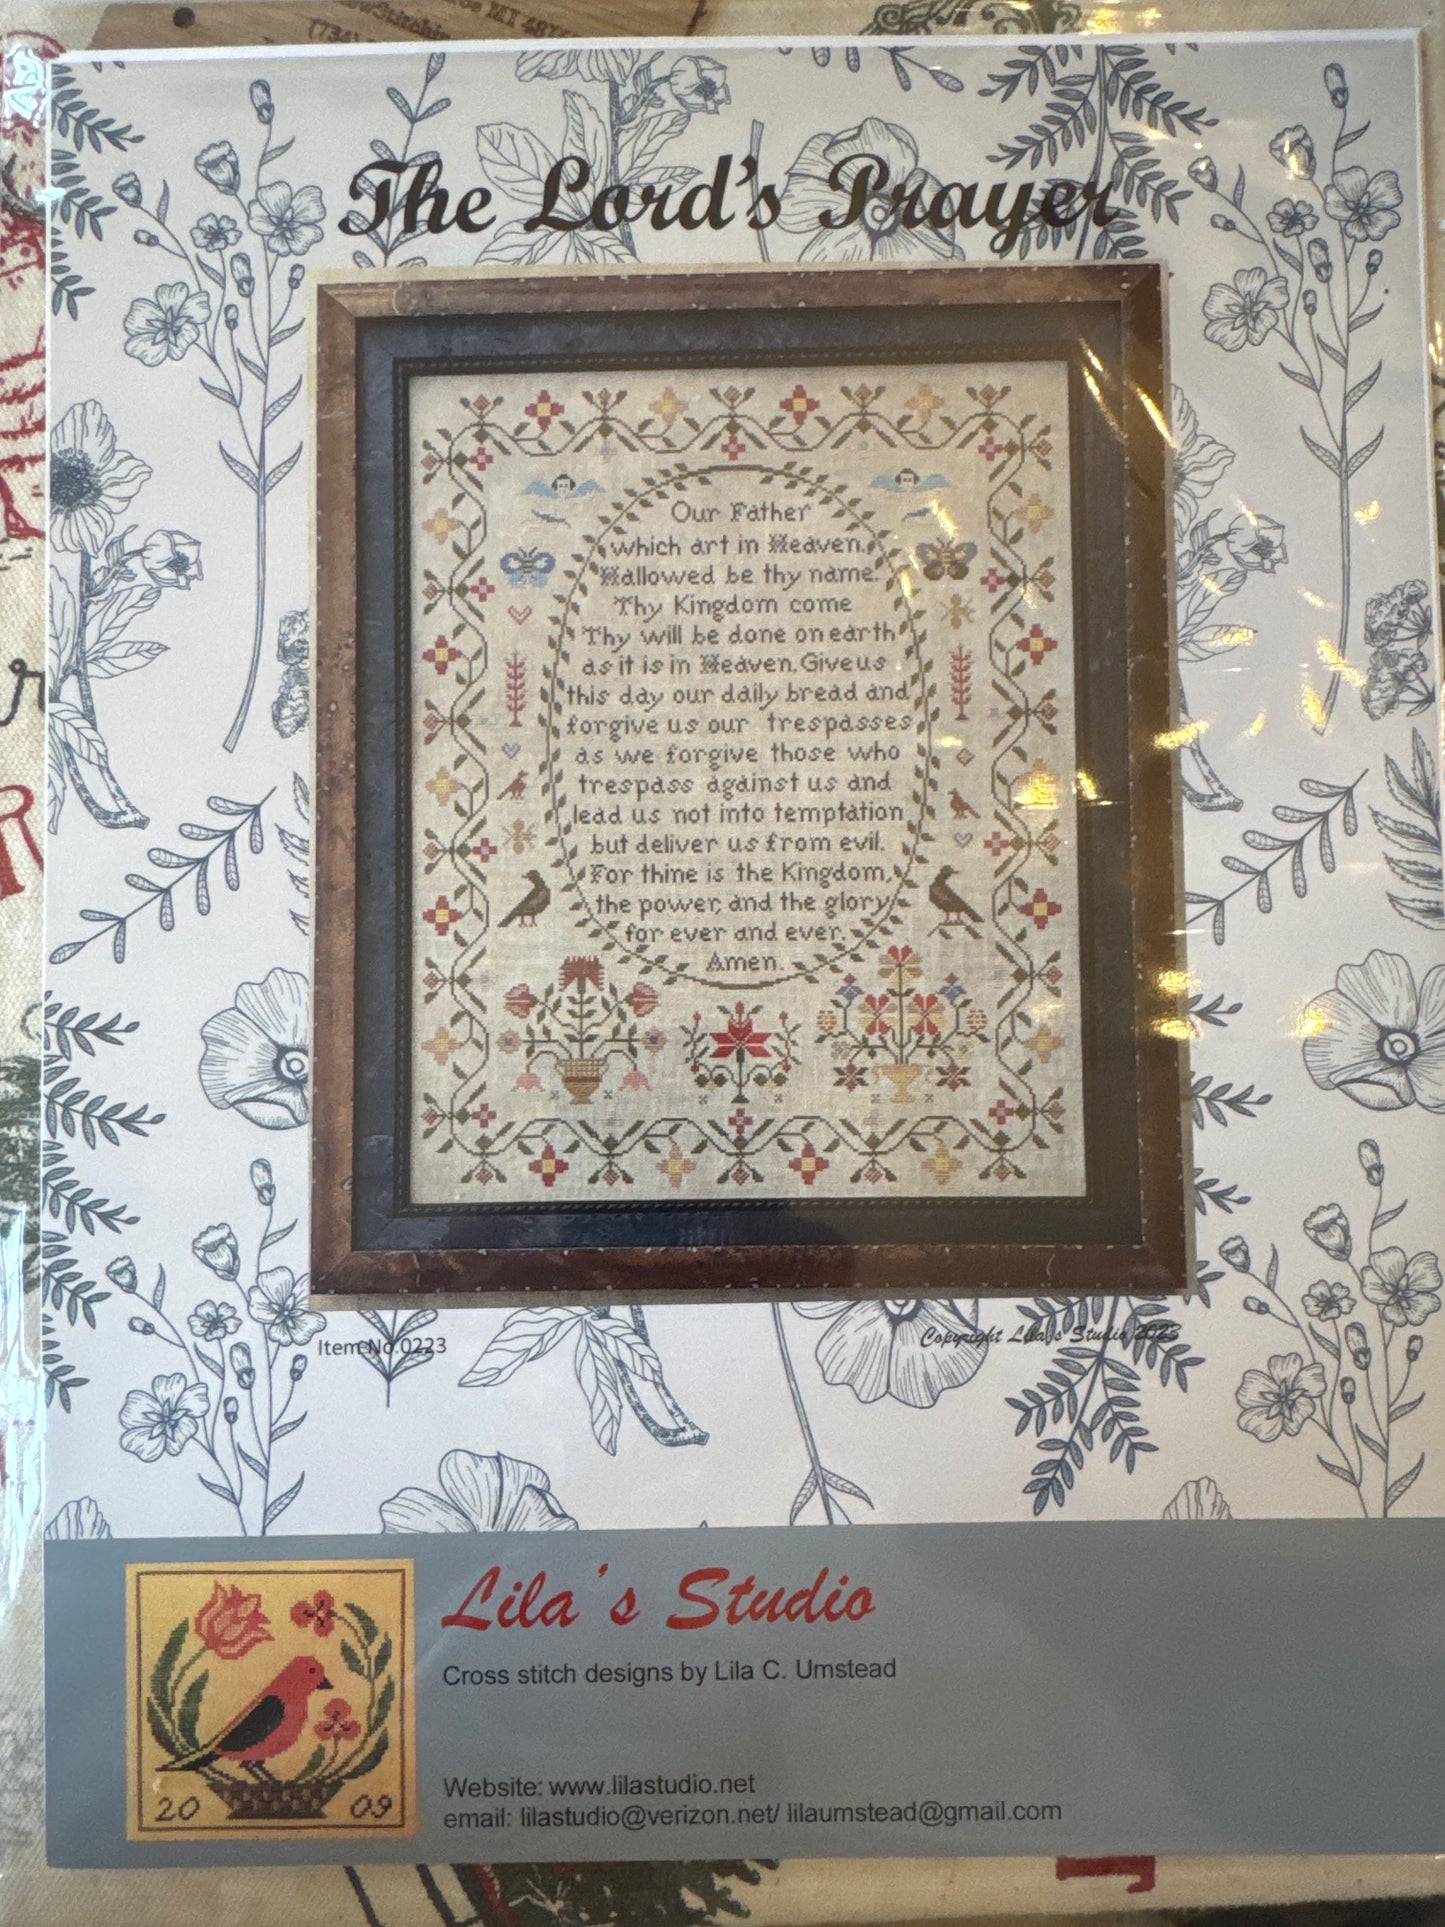 MI
(734)
The Lord's Prayer
Our Father
which art in Heaven.
Hallowed be thy name.
Thy Kingdom come
Thy will be done on earth
as it is in Heaven. Give us
this day our daily bread and
forgive us our trespasses
as we forgive those who
trespass against us and
lead us not into temptation
but deliver us from evil.
For thine is the Kingdom,
the power, and the glory
for ever and ever.
Amen.
Item No.0223
Copyright Lila's Studio 2023
Lila's Studio
Cross stitch designs by Lila C. Umstead
Website: www.lilastudio.net
email: lilastudio@verizon.net/ lilaumstead@gmail.com
20 09